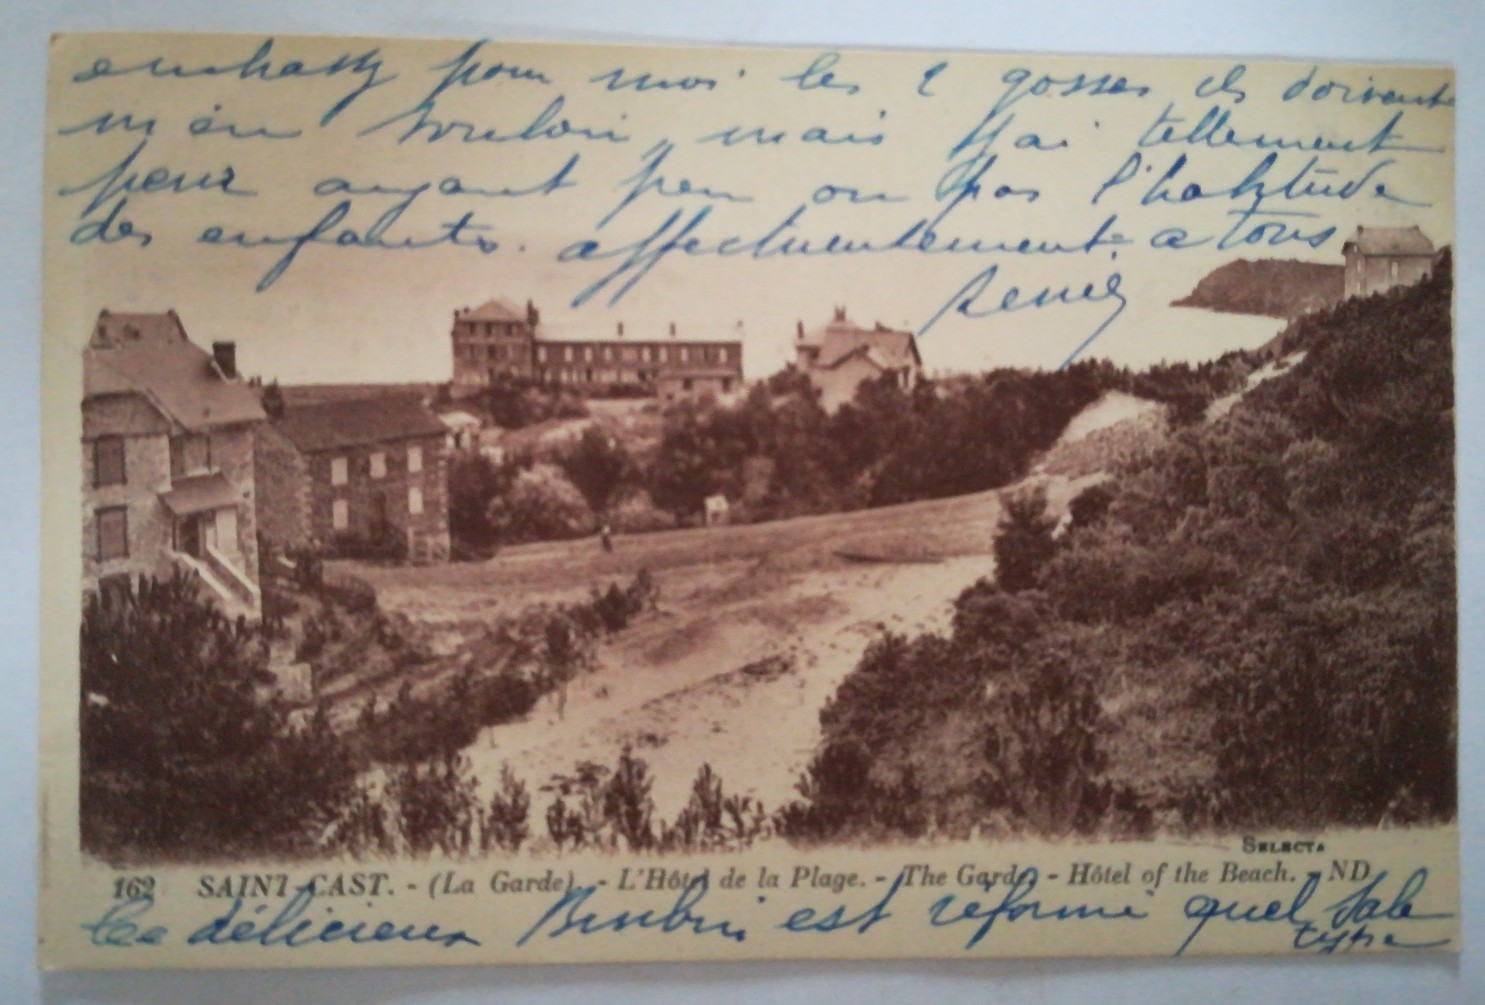 embrassez pour moi les 2 gosses ils doivent
m'en vouloir, mais j'ai tellement
peur ayant peu ou pas l'habitude
des enfants. affectueusement a tous
SELECTA
162 SAINT-CAST. - (La Garde). - L'Hôtel de la Plage. - The Garde. - Hôtel of the Beach. - ND
le délicieux est réformé quel sale
type